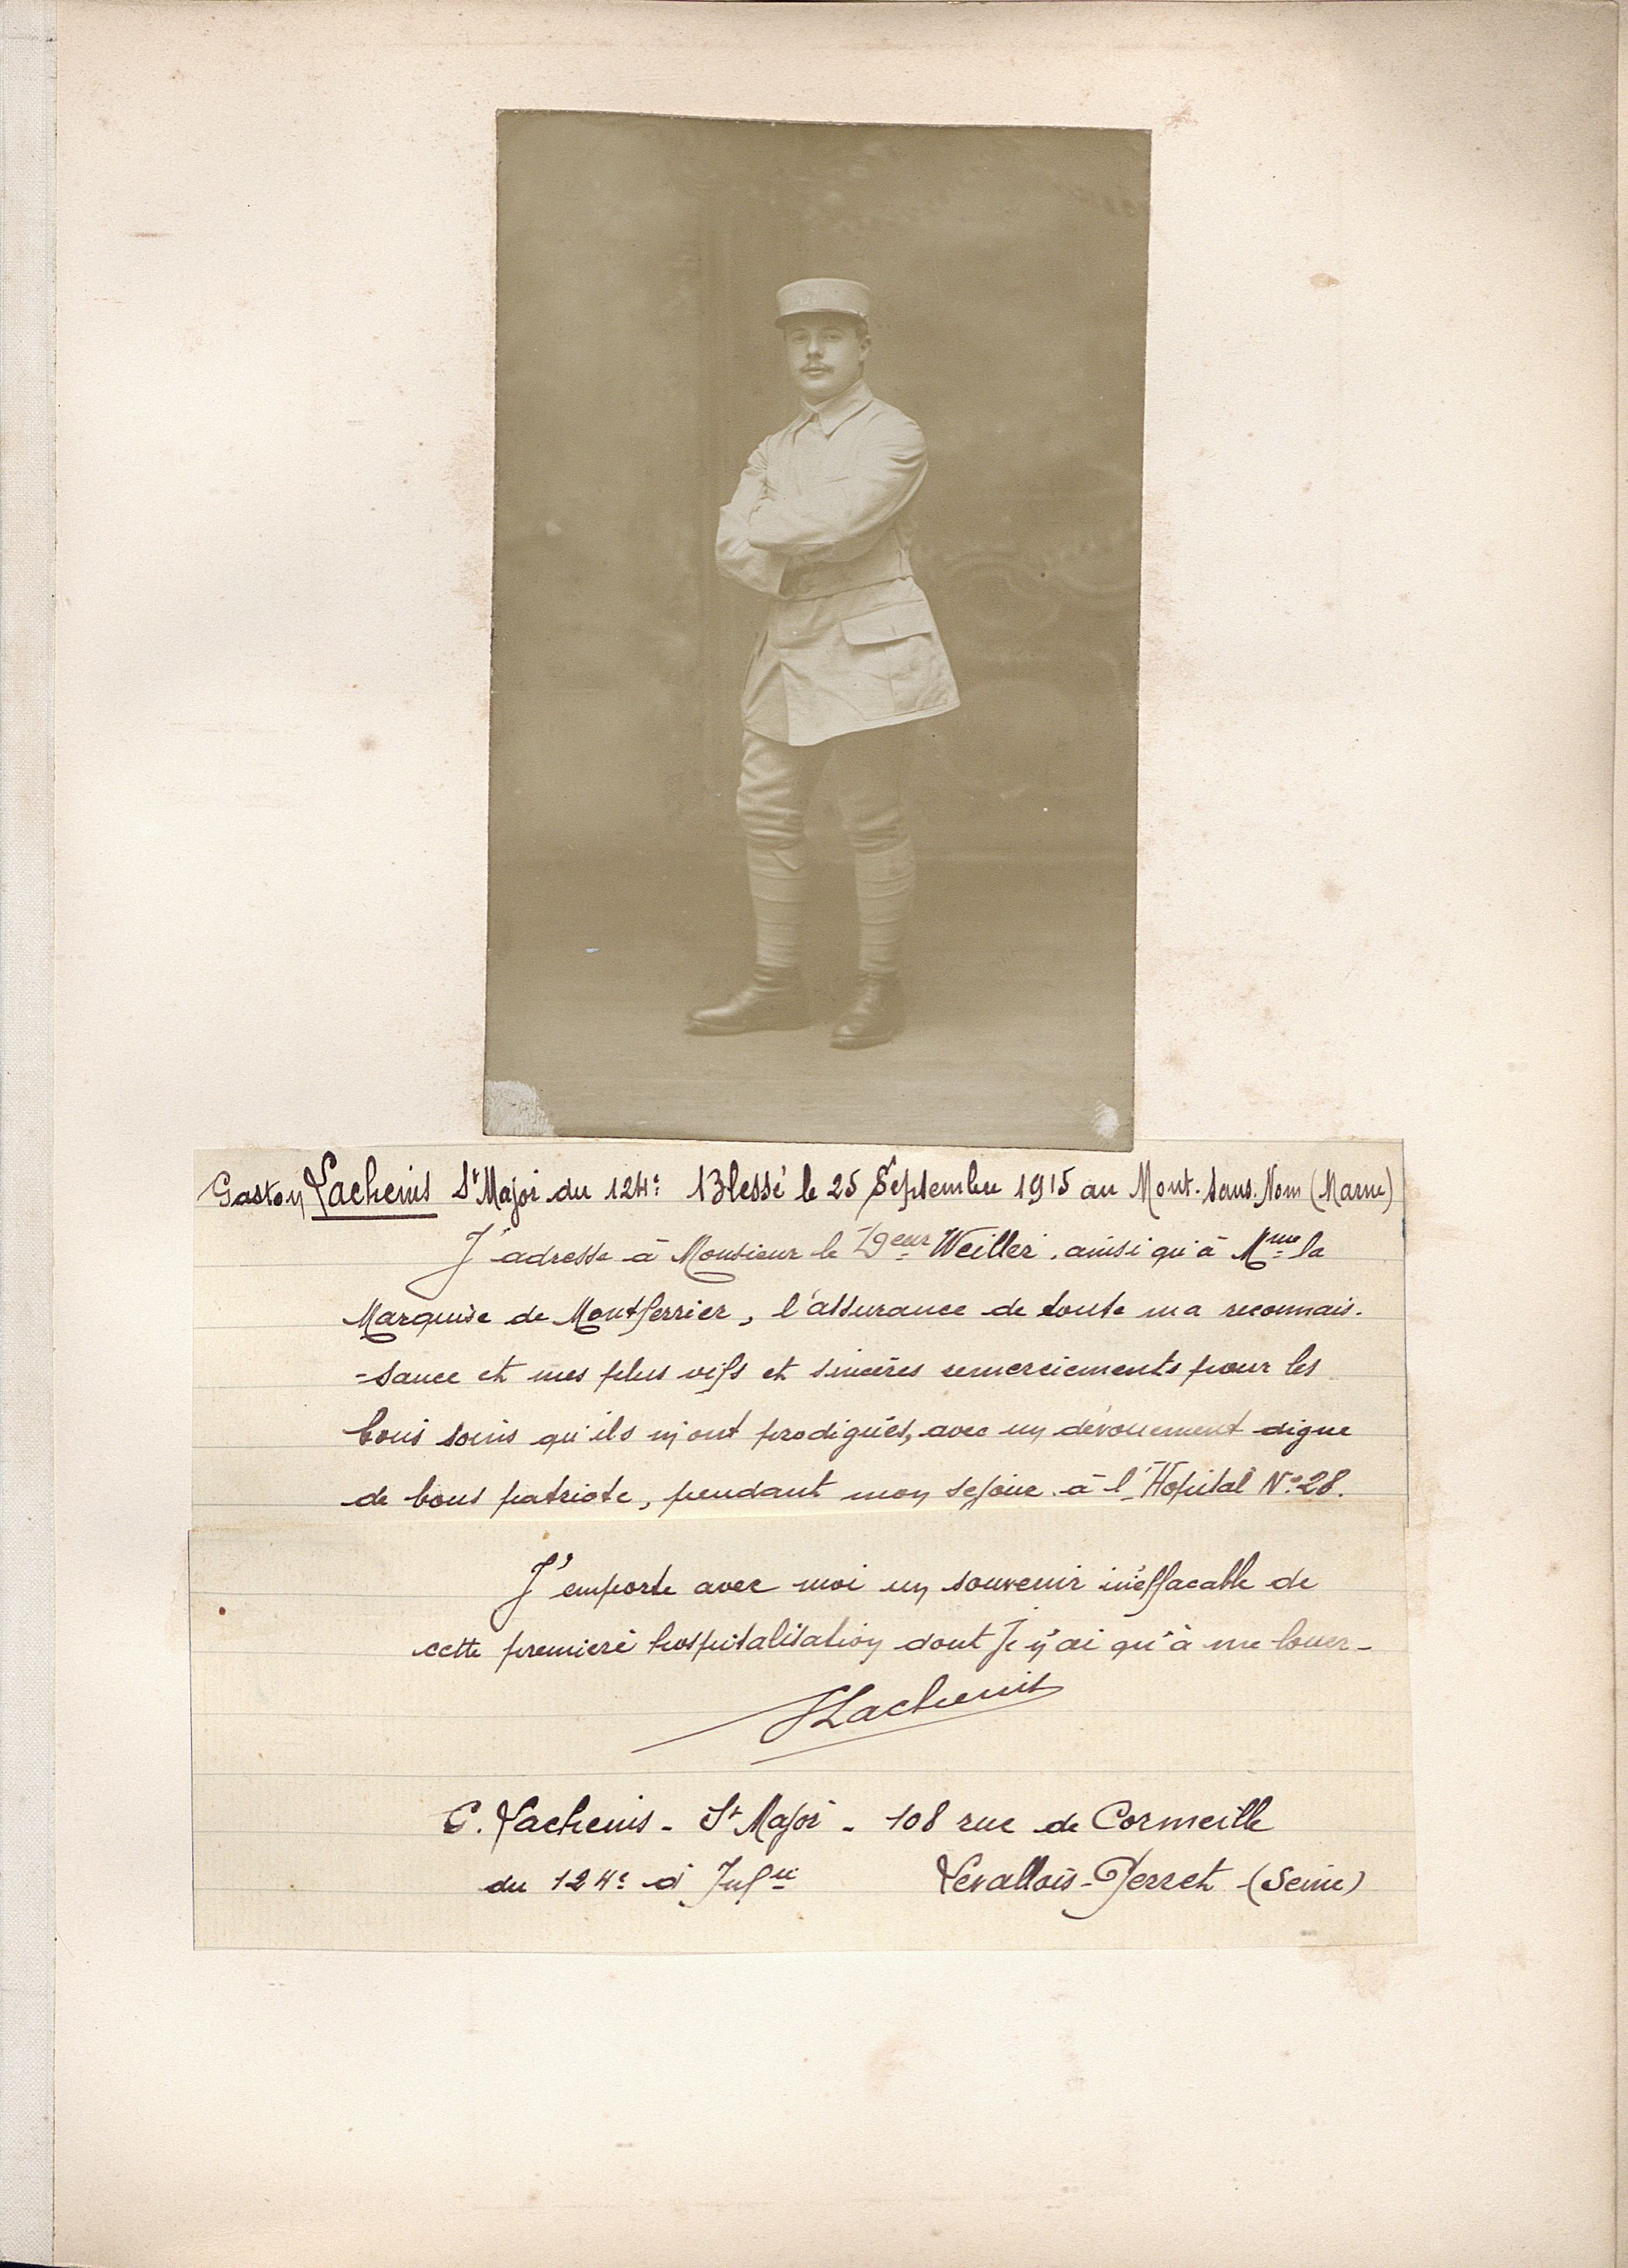 Gaston Lachenis St Major du 124e Blessé le 25 Septembre 1915 au Mont-Sans-Nom (Marne)
J'adresse à Monsieur le Deur Weiller, ainsi qu'à Mme la
Marquise de Montferrier, l'assurance de toute ma reconnais-
-sance et mes plus vifs et sincères remerciements pour les
bons soins qu'ils m'ont prodigués, avec un dévouement digne
de bons patriote, pendant mon séjour à l'Hopital No 28.
J'emporte avec moi un souvenir inéffacable de
cette première hospitalisation dont je n'ai qu'à me louer-
GLachenis
G. Lachenis - St Major - 108 rue de Cormeille
du 124e d'Infie Levallois-Perret (Seine)